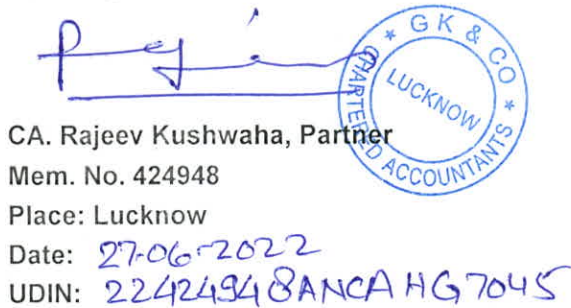 * GK & CO *
CHARTERED ACCOUNTANTS
LUCKNOW
CA. Rajeev Kushwaha, Partner
Mem. No. 424948
Place: Lucknow
Date: 27-06-2022
UDIN: 22424948ANCAHG7045